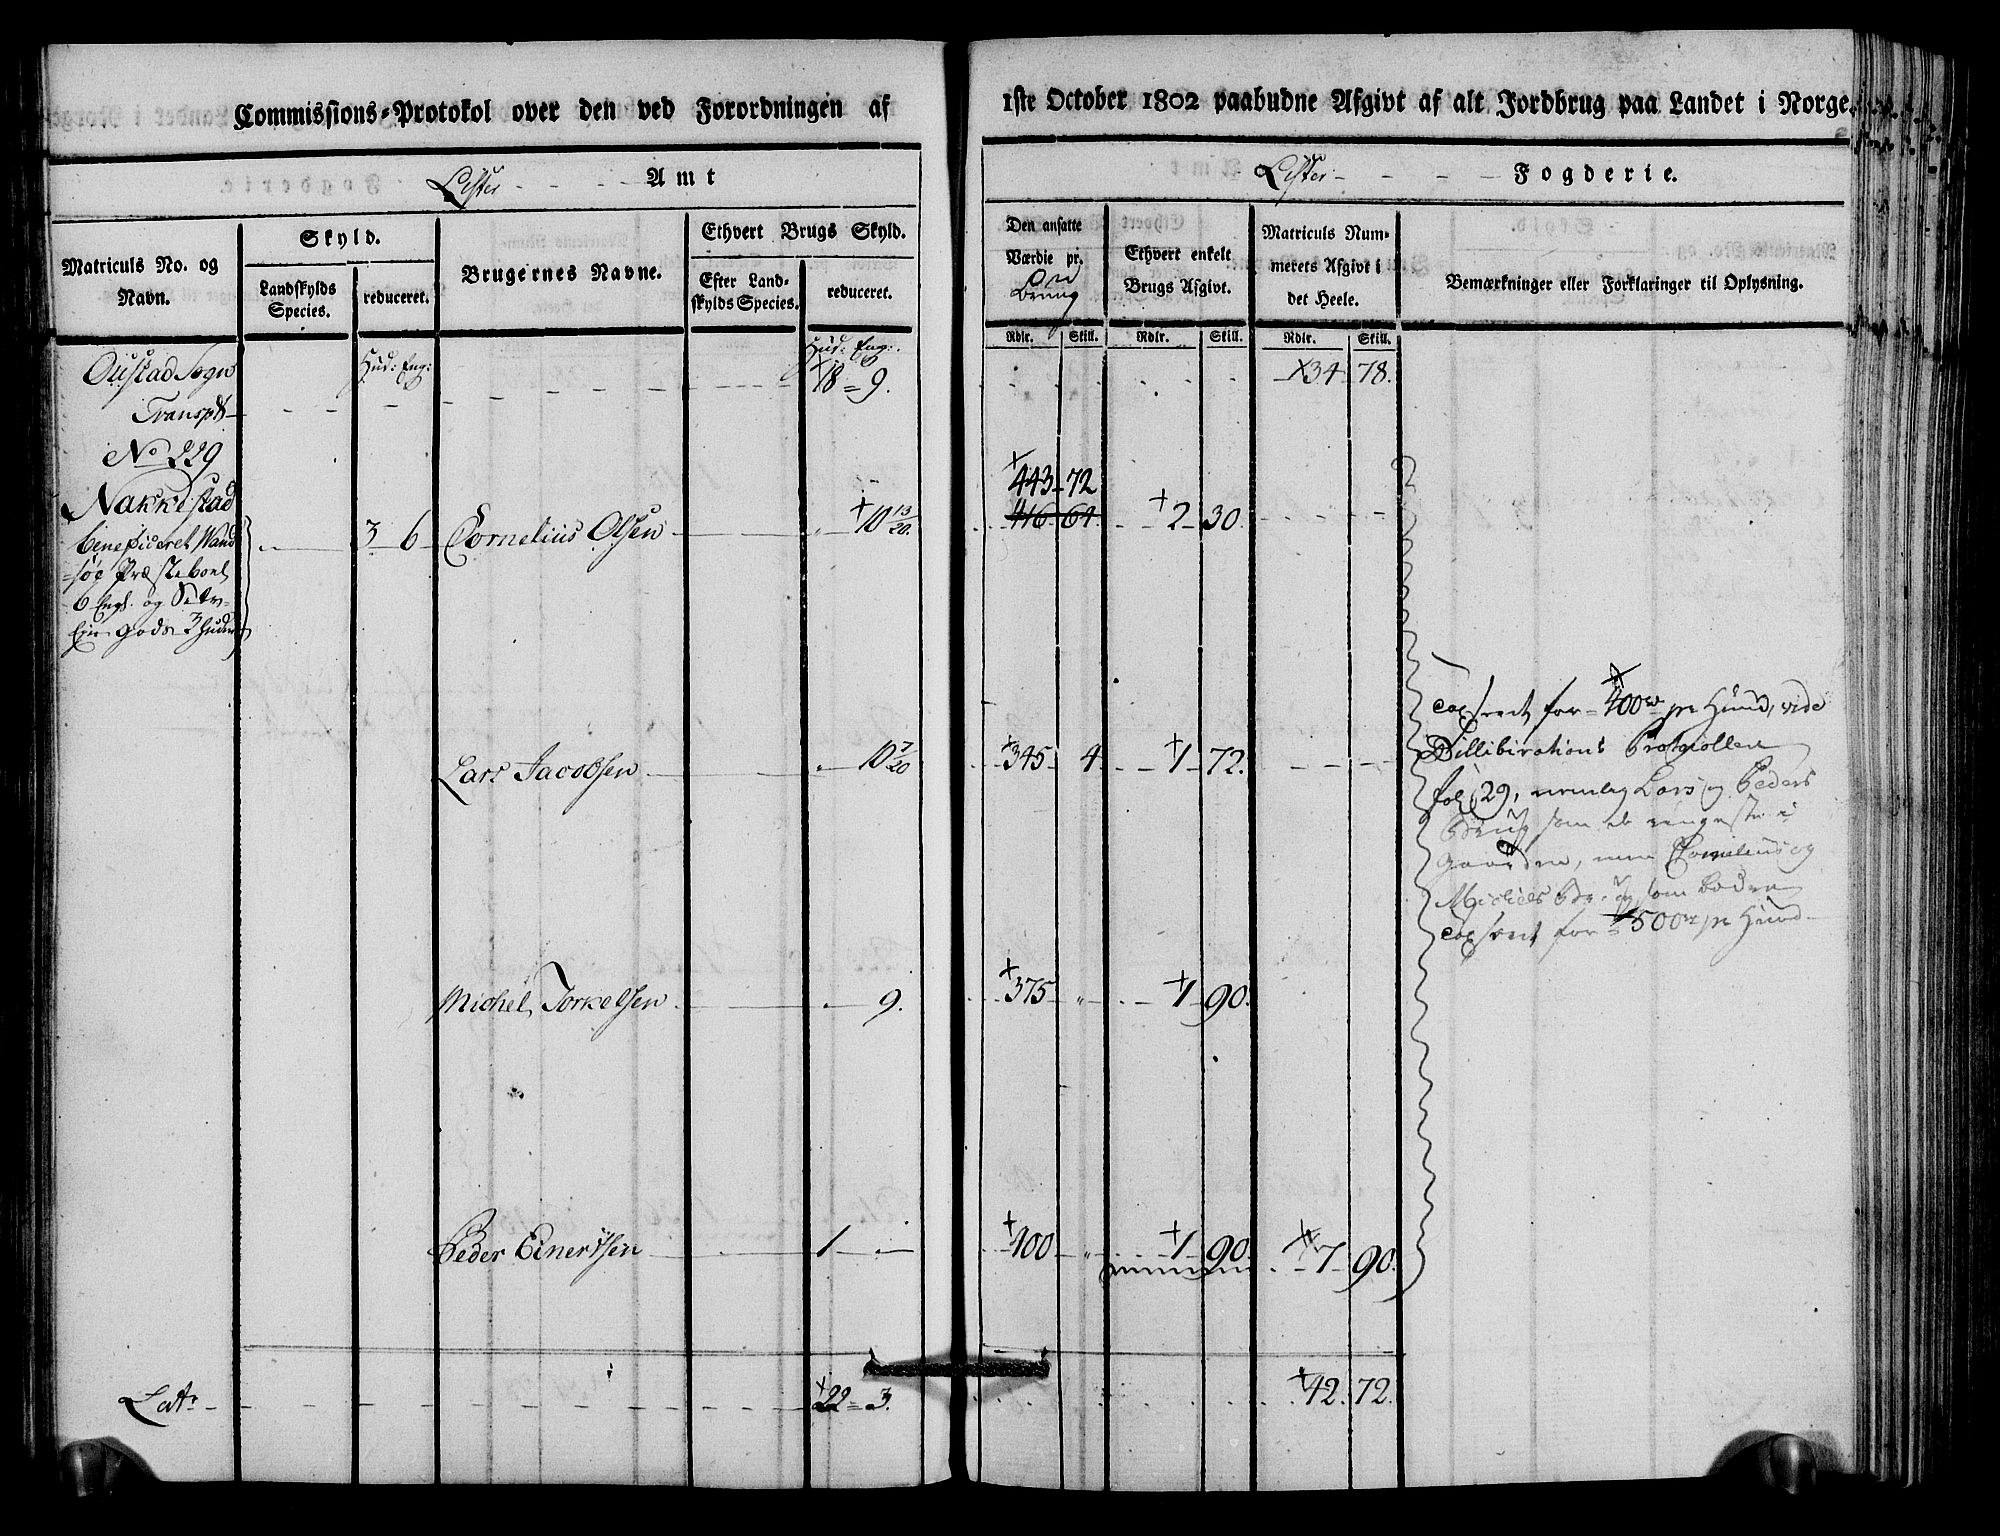 Commissions-Protokol over den ved Forordningen af
1ste October 1802 paabudne Afgivt af alt Jordbrug paa Landet i Norge.
Lister Amt
Lister Fogderie.
Matriculs No. og Navn.
Skyld.
Landskylds Species.
reduceret.
Brugernes Navne.
Ethvert Brugs Skyld.
Efter Landskylds Species.
reduceret.
Den ansatte Værdie pr.
Brug
Ethvert enkelt Brugs Afgivt.
Matriculs Nummerets Afgivt i det Heele.
Bemærkninger eller Forklaringer til Oplysning.
Rdlr. Skill. Rdlr. Skill. Rdlr. Skill.
Hud: Eng: Hud: Eng:
Oustad Sogn 18 = 9. 34 78.
Transpt
No 229
Nakkestad
443 72
3 6 Cornelius Olsen " 10 13/20. 416 61 2 30.
beneficeret Wand
søe Præsteboel
6 Engl. og
gods 3 huder
Lars Jacobsen 10 7/20 345 4 1 72.
Michel Torkelsen 9. 375 " 1 90.
Peder Einertsen 1 - 400 " 1 90. 7 90.
taxeret for 400 rd pr Hund, vide
Dillibirations Protocollen
fol 29, nemlig Lars og Peders
Brug som de ringeste i
gaarden, men Cornelius og
Michels Brug som bedre
taxeret for 500 rd pr Hund
Lats 22 = 3. 42 72.